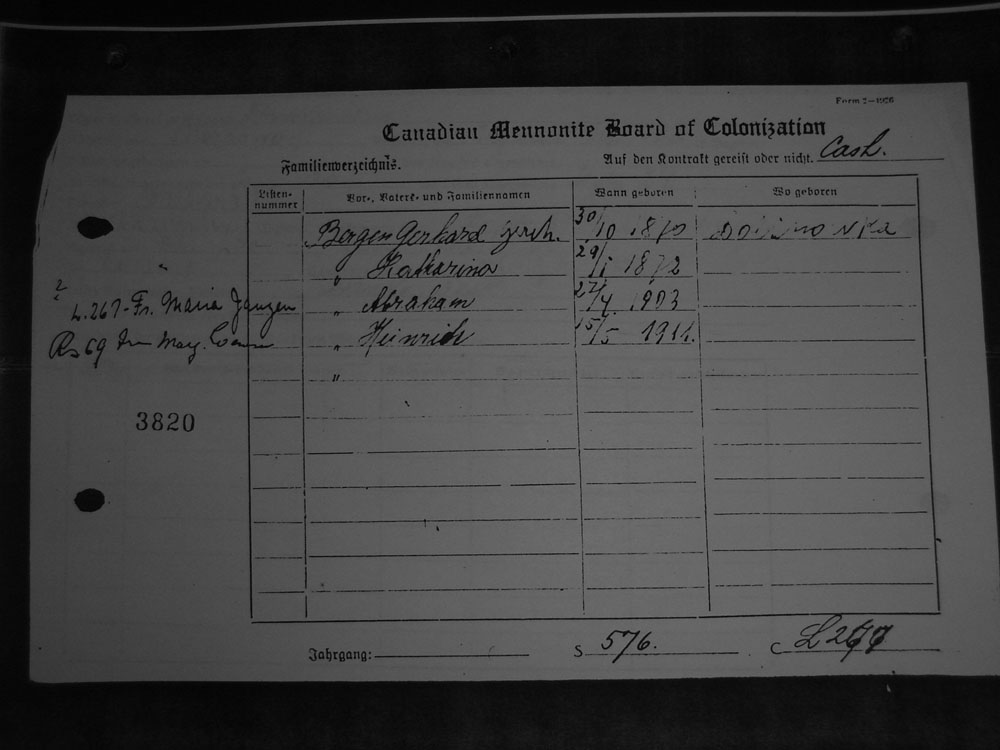 Form 7—1926
Canadian Mennonite Board of Colonization
Familienverzeichnis.
Auf den Kontrakt gereist oder nicht. Cash.
Listen-nummer
Vor-, Vaters- und Familiennamen
Wann geboren
Wo geboren
Bergen Gerhard 30/10 1870
" Katharina 29/1 1872
L.267 - Fr. Maria Janzen
" Abraham 27/4 1903
" Heinrich 15/5 1911.
"
3820
Jahrgang:
S 576.
C